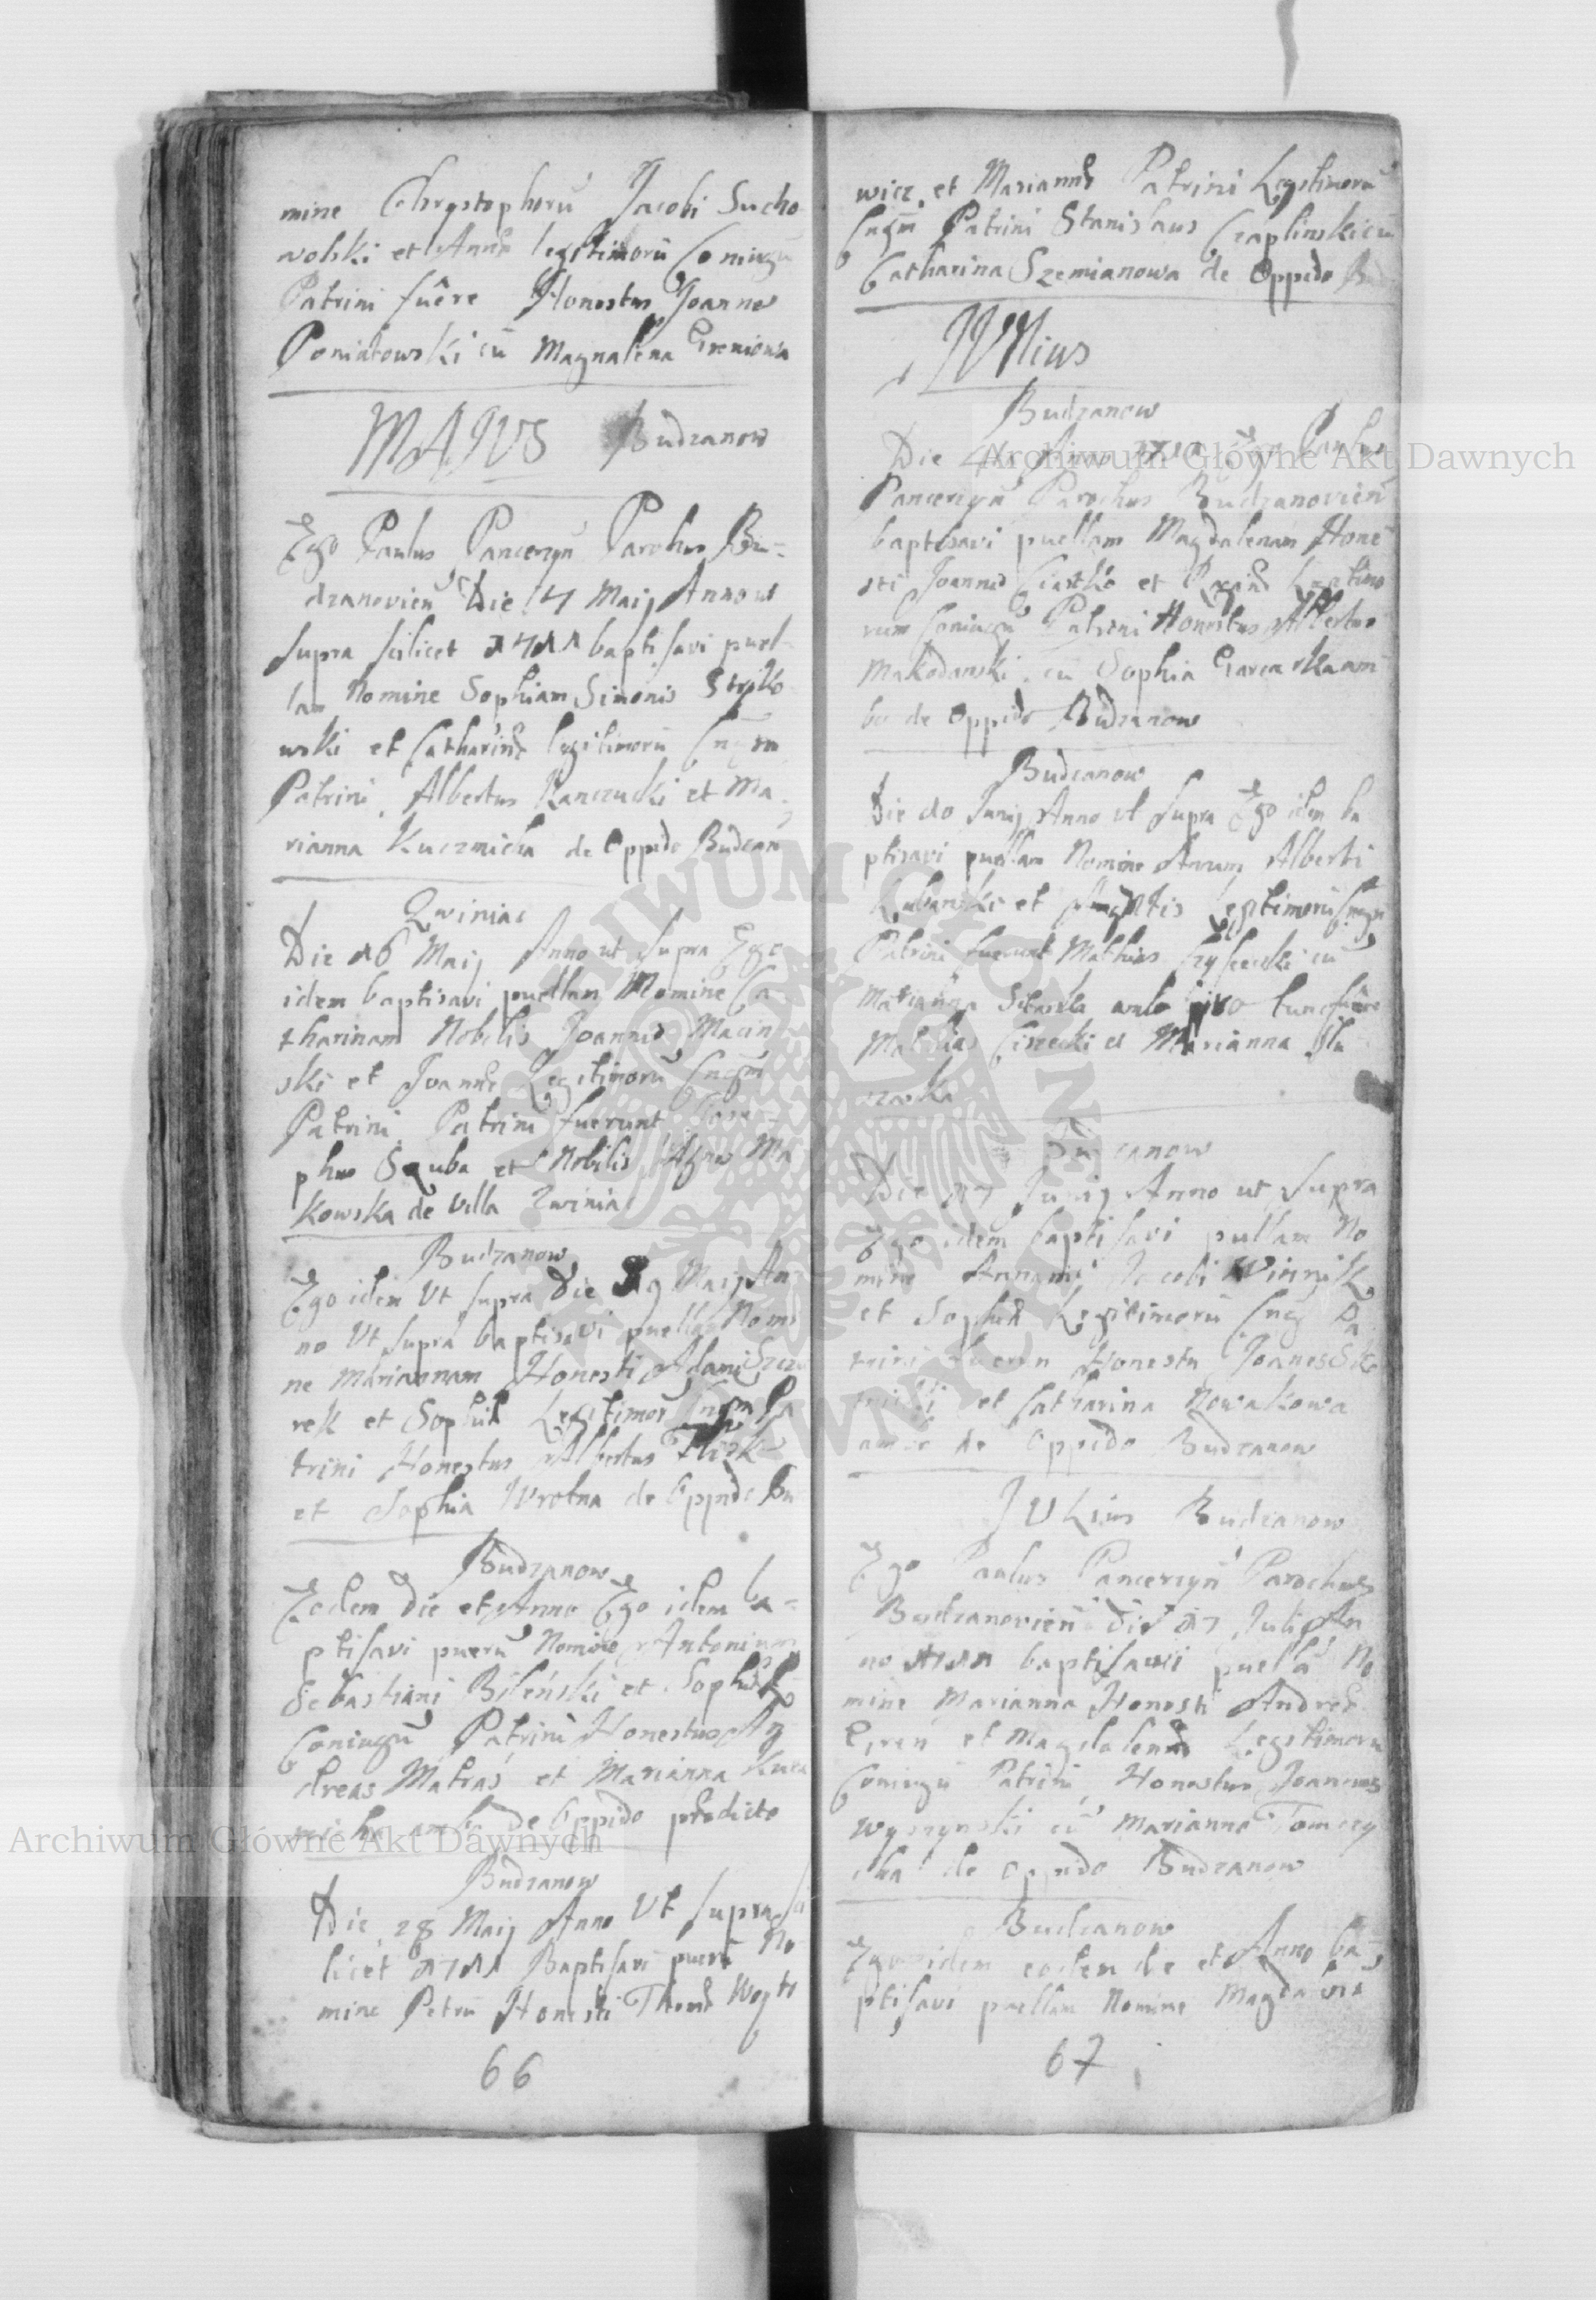 mine Chrystophorū Jacobi Sucho
wolski et Annæ legitimorū Coniugū
Patrini fuêre Honestus Joannes
Poniatowski cū Magnalena Greniowa
MAJUS Budzanow
Ego Paulus Pancerzyń Parohus Bu-
dzanovień Die 4 Maij Anno ut
supra scilicet 1711 baptisavi puel-
lam Nomine Sophiam Simonis
wski et Catharinæ legitimorū
Patrini Albertus Kanczucki et Ma-
rianna Kuczmicha de Oppido Budzan
Zwiniac
Die 16 Maij Anno ut supra Ego
idem baptisavi puellam Nomine Ca-
tharinam Nobilis Joannis Macin
ski et Joannæ Legitimorū
Patrini Patrini fuerunt Jose-
phus et Nobilis Agnes Ma
kowska de Villa Zwiniac
Budzanow
Ego idem Ut supra Die 19 Maij An
no Ut supra baptisavi puellam Nomi
ne Mariannam Honesti Adami
rek et Sophiæ Legitimor Pa
trini Honestus Albertus
et Sophia Wrotna de Oppido Bu
Budzanow
Eodem Die et Anno Ego idem ba-
ptisavi puerū Nomine Antonium
Sebastiani Bileński et Sophiæ L
Coniugū Patrini Honestus An
dreas Matras et Marianna Kucz
micha ambo de Oppido prædicto
Budzanow
Die 28 Maij Anno Ut supra sci
licet 1711 Baptisavi puerū No
mine Petrū Honesti Thomæ Woyto
66
wicz et Mariannæ Patrini Legitimorū
Patrini Stanislaus Czaplinski cū
Catharina Szemianowa de Oppido Bud
JUNius
Budzanow
Die Anno 1711 Ego Paulus
Pancerzyń Parochus Budzanovień
baptisavi puellam Magdalenam Hone
sti Joannis Ciastko et Legitimo
rum Coniugū Patrini Honestus Albertus
Makodanski cū Sophia Garcarka am
bo de Oppido Budzanow
Budzanow
Die 10 Junij Anno ut supra Ego idem ba
ptisavi puellam Nomine Annam Alberti
et Agnetis Legitimorū
Patrini fuerunt Mathias cū
Marianna ambo tunc fuere
Mathias et Marianna
Budzanow
Die 17 Junij Anno ut supra
Ego idem baptisavi puellam No
mine Annam Jacobi Winnik
et Sophiæ Legitimorū Pa
trini fuerun Honestu Joanes
et Catharina Nowakowa
ambo de Oppido Budzanow
JULius Budzanow
Ego Paulus Pancerzyń Parochus
Budzanovień Die 17 Julij An
no 1711 baptisavi puellā No
mine Marianna Honesti Andreæ
Gren et Magdalenæ Legitimoru
Coniugū Patrini Honestus Joannes
Wyszynski cū Marianna Tomczy
cha de Oppido Budzanow
Budzanow
Ego idem eodem die et Anno ba-
ptisavi puellam Nomine Magdalena
67
Archiwum Główne Akt Dawnych
Archiwum Główne Akt Dawnych
ARCHIWUM GŁÓWNE AKT DAWNYCH